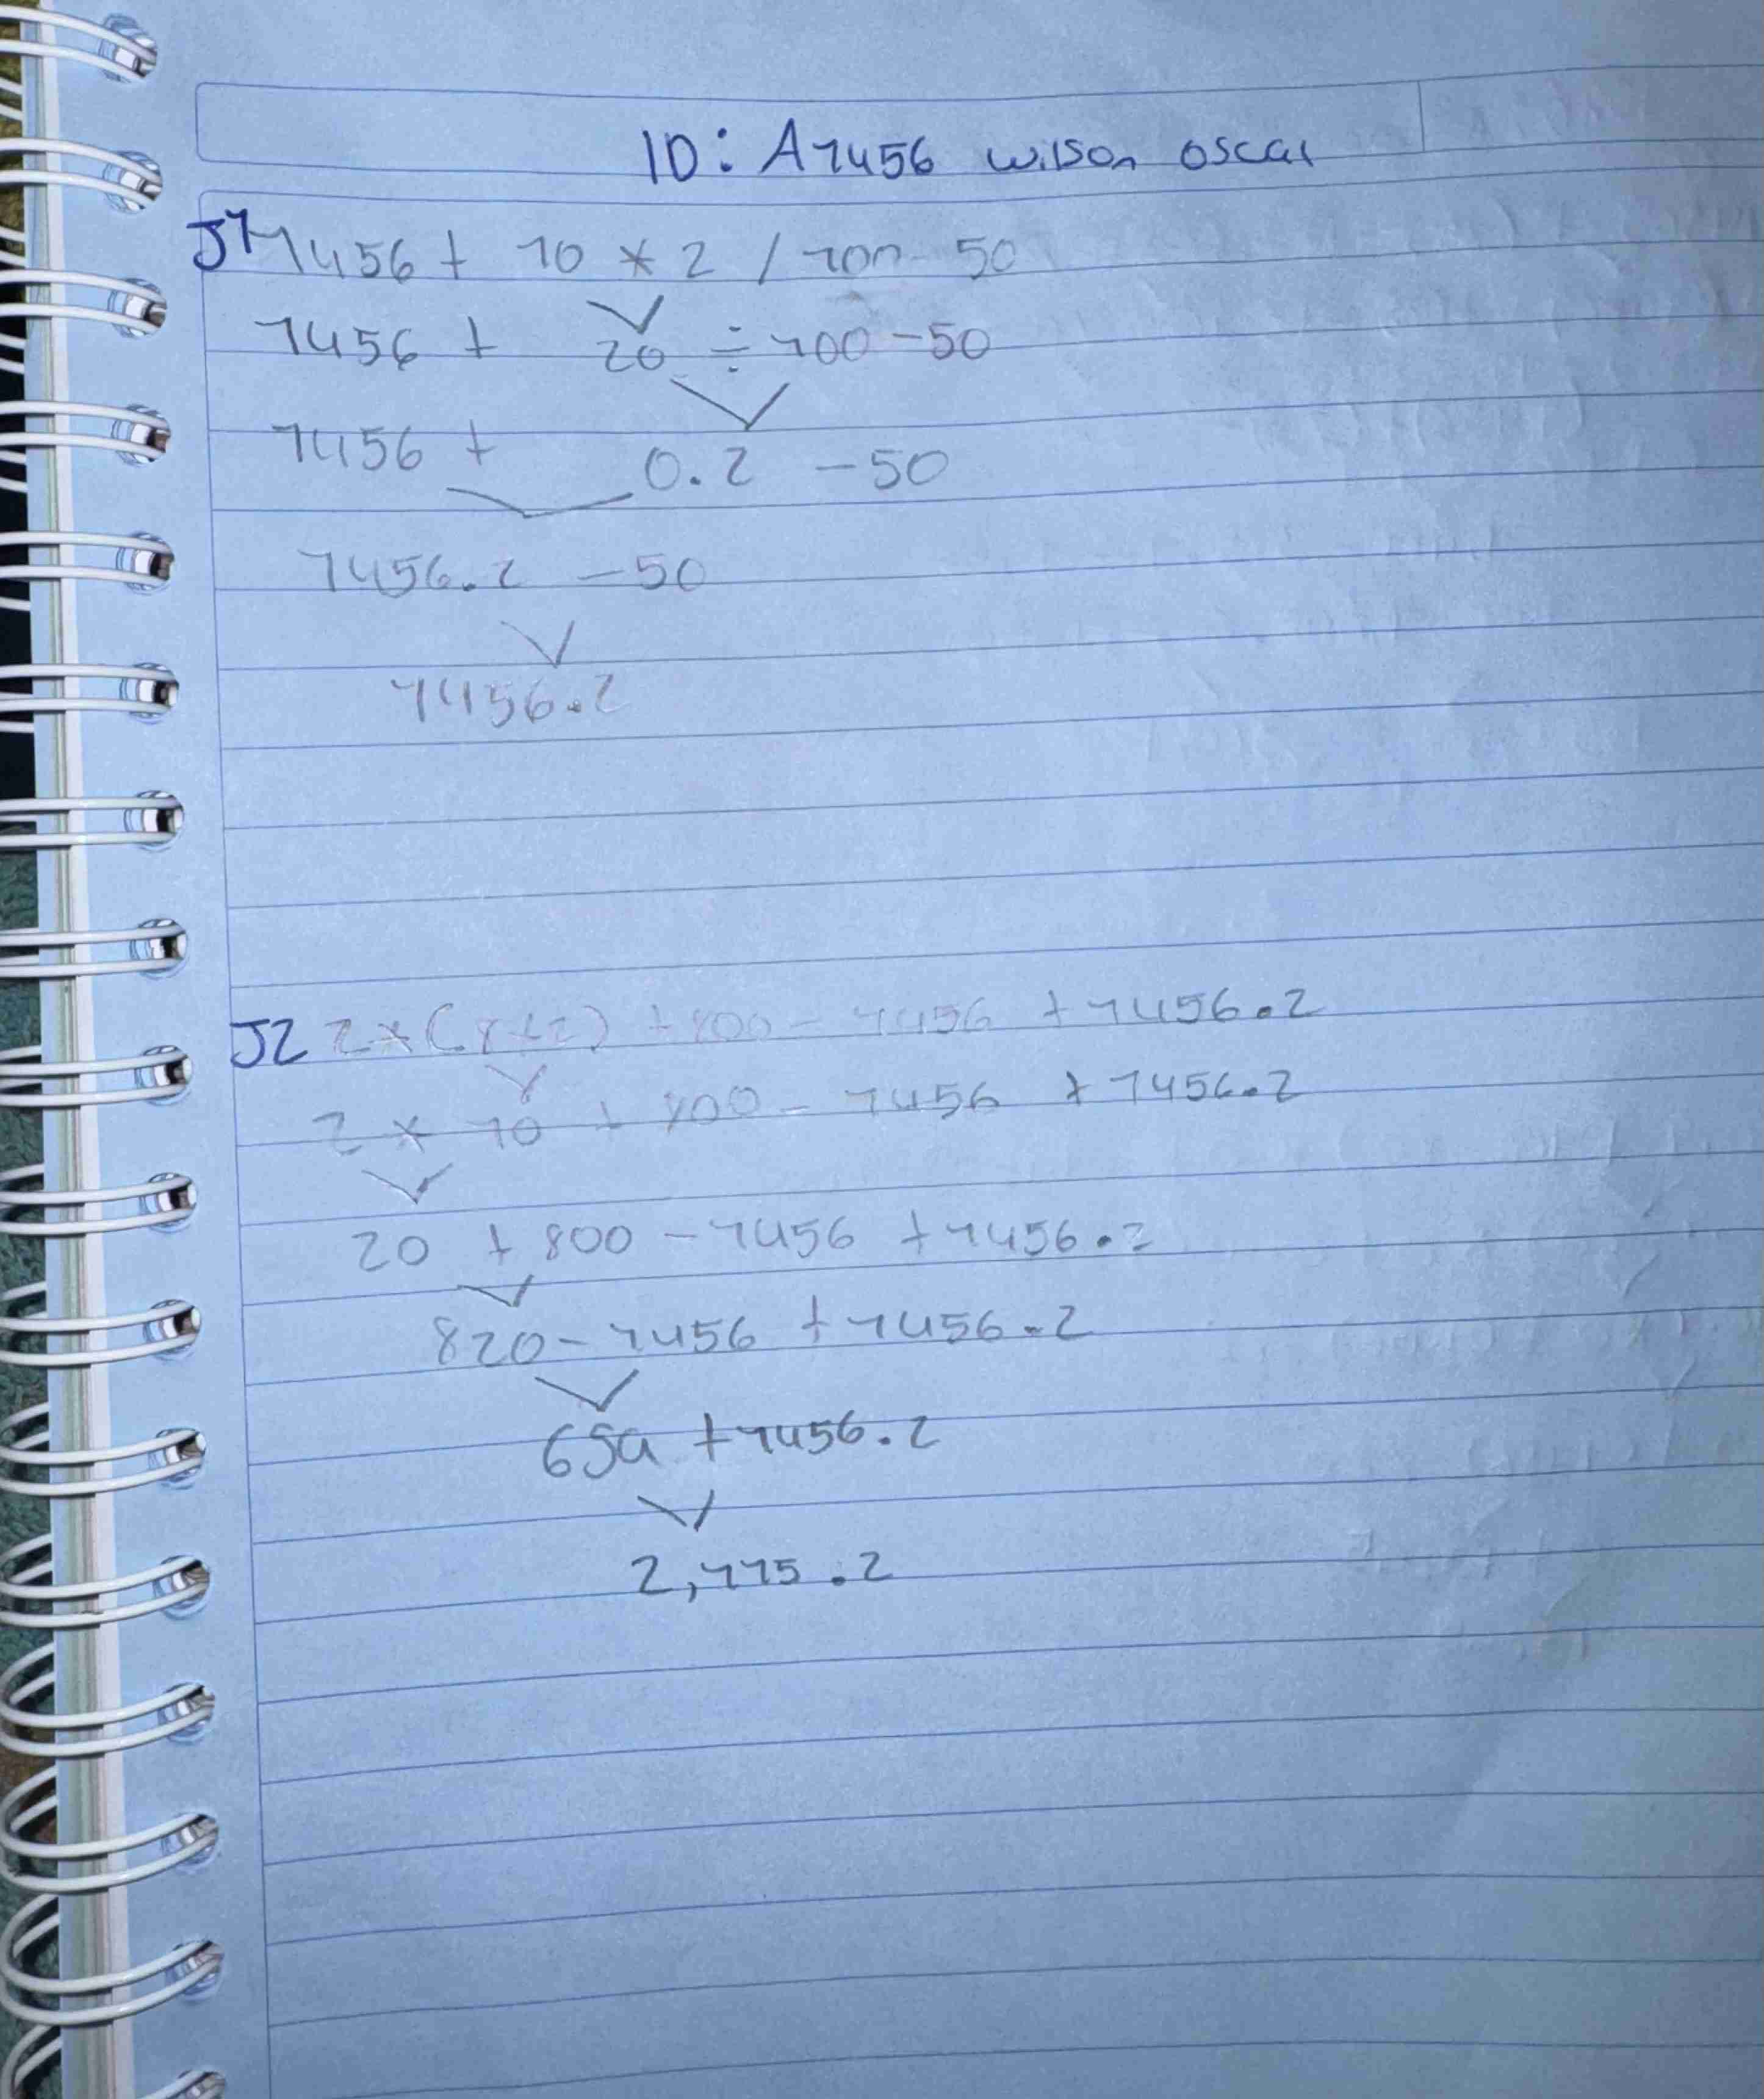 ID: A1456 wilson oscar
J1 1456 + 10 * 2 / 100 - 50
1456 + 20 ÷ 100 - 50
1456 + 0.2 - 50
1456.2 - 50
1456.2
J2 2 * (8+2) + 800 - 1456 + 1456.2
2 * 10 + 800 - 1456 + 1456.2
20 + 800 - 1456 + 1456.2
820 - 1456 + 1456.2
659 + 1456.2
2,115.2